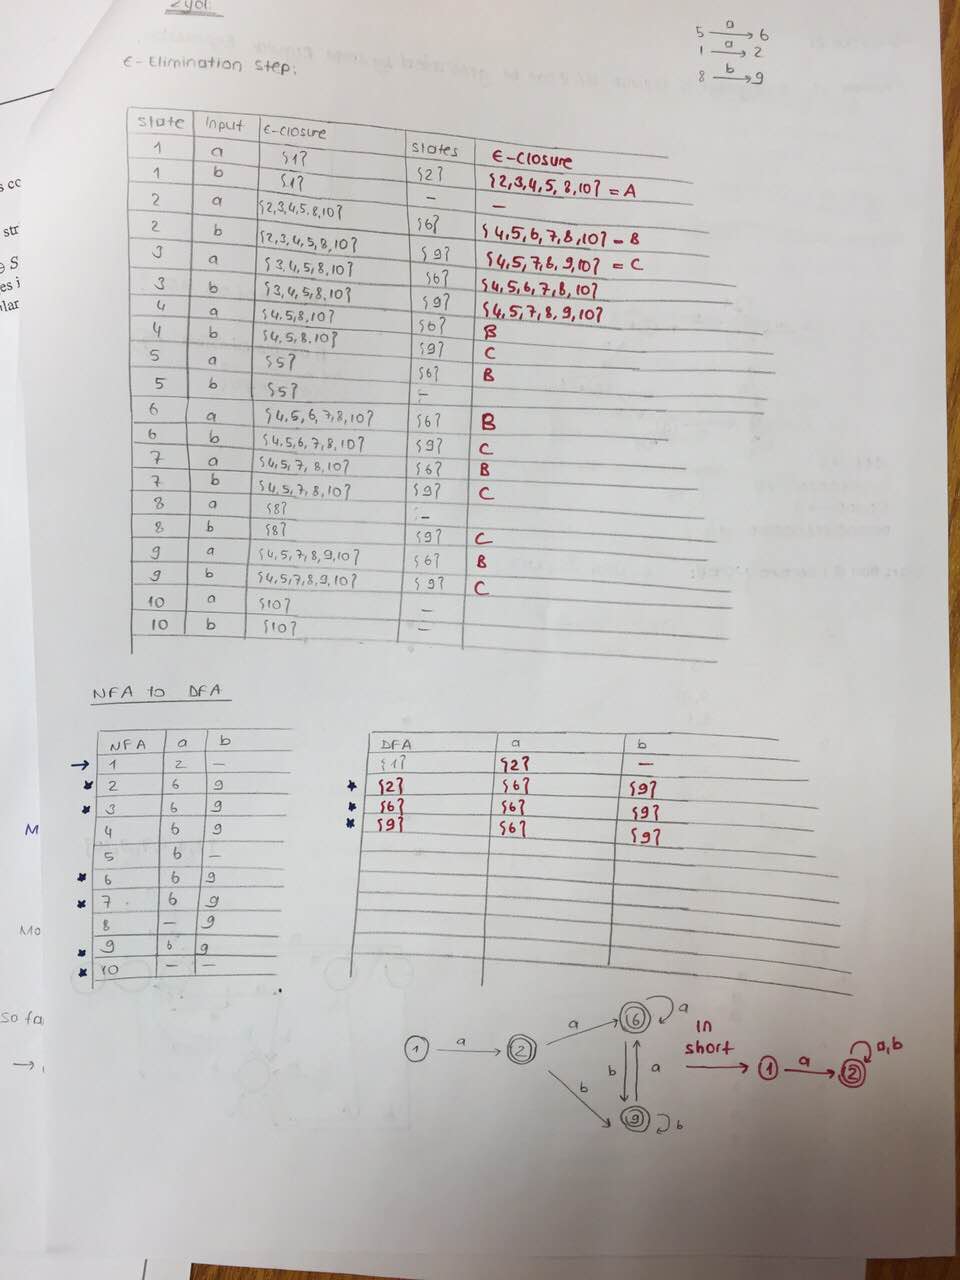 2 yol:
5 a→ 6
1 a→ 2
8 b→ 9
ε- Elimination step:
State Input ε-closure states ε-closure
1 a {1} {2} {2,3,4,5,8,10} = A
1 b {1} – –
2 a {2,3,4,5,8,10} {6} {4,5,6,7,8,10} – B
2 b {2,3,4,5,8,10} {9} {4,5,7,8,9,10} = C
3 a {3,4,5,8,10} {6} {4,5,6,7,8,10}
3 b {3,4,5,8,10} {9} {4,5,7,8,9,10}
4 a {4,5,8,10} {6} B
4 b {4,5,8,10} {9} C
5 a {5} {6} B
5 b {5} –
6 a {4,5,6,7,8,10} {6} B
6 b {4,5,6,7,8,10} {9} C
7 a {4,5,7,8,10} {6} B
7 b {4,5,7,8,10} {9} C
8 a {8} –
8 b {8} {9} C
9 a {4,5,7,8,9,10} {6} B
9 b {4,5,7,8,9,10} {9} C
10 a {10} –
10 b {10} –
NFA to DFA
NFA a b
→ 1 2 –
* 2 6 9
* 3 6 9
4 6 9
5 6 –
* 6 6 9
* 7 6 9
8 – 9
* 9 6 9
* 10 – –
DFA a b
{1} {2} –
* {2} {6} {9}
* {6} {6} {9}
* {9} {6} {9}
1 a 2 a 6 a
b a
b 9 b
in short
1 a 2 a,b
M
Mo
so fa
→
s co
str
S
es i
lar